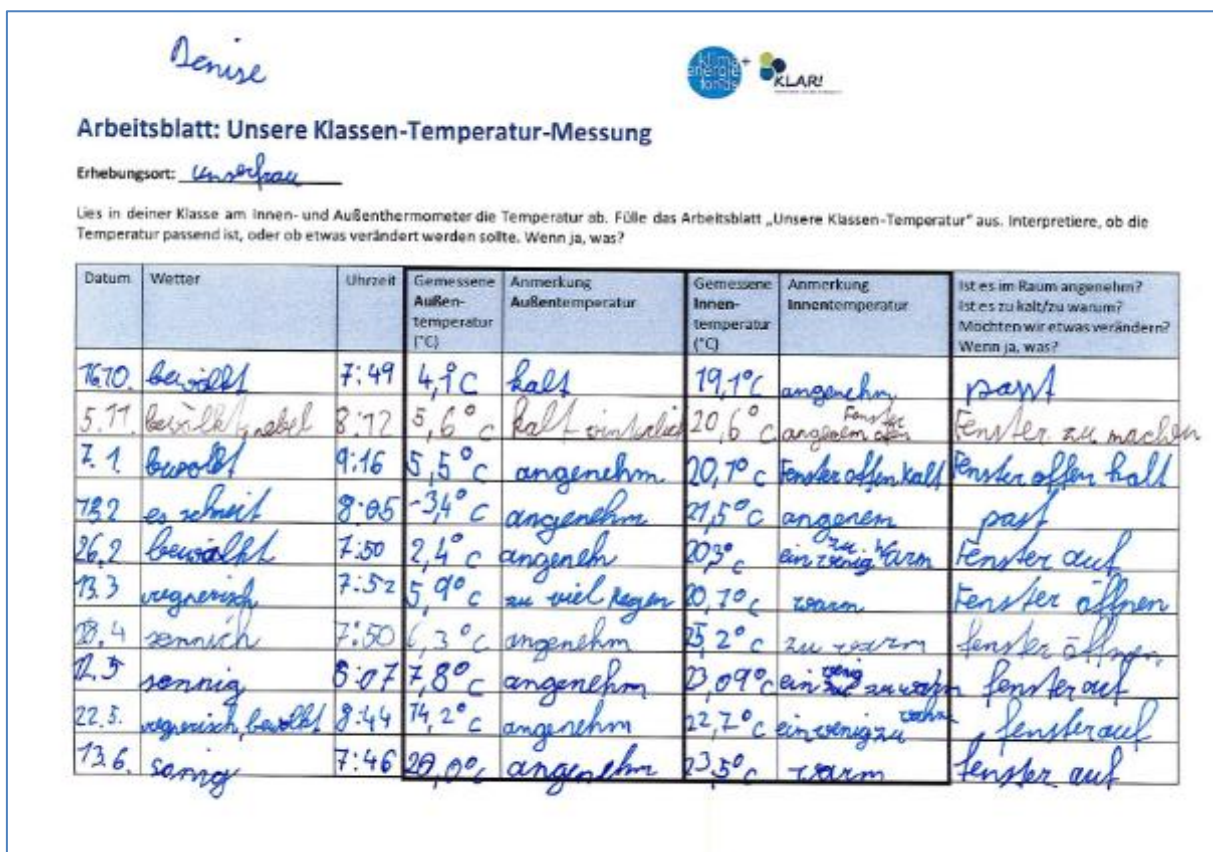 Denise
klima+ energie fonds KLAR!
Arbeitsblatt: Unsere Klassen-Temperatur-Messung
Erhebungsort: Unserfrau
Lies in deiner Klasse am Innen- und Außenthermometer die Temperatur ab. Fülle das Arbeitsblatt „Unsere Klassen-Temperatur“ aus. Interpretiere, ob die
Temperatur passend ist, oder ob etwas verändert werden sollte. Wenn ja, was?
Datum Wetter Uhrzeit Gemessene Außen-temperatur (°C) Anmerkung Außentemperatur Gemessene Innen-temperatur (°C) Anmerkung Innentemperatur Ist es im Raum angenehm? Ist es zu kalt/zu warum? Möchten wir etwas verändern? Wenn ja, was?
16.10. bewölkt 7:49 4,1°C kalt 19,1°C angenehm passt
5.11. bewölkt, nebel 8:12 5,6°C kalt 20,6°C angenem Fenster offen Fenster zu machen
7.1. bewolkt 9:16 5,5°C angenehm 20,1°C Fenster offen kalt Fenster offen kalt
es schneit 8:05 -3,4°C angenehm 21,5°C angenem past
26.2 bewölkt 7:50 2,4°C angeneh 20,3°C ein wenig zu warm Fenster auf
13.3 regnerisch 7:52 5,9°C zu viel Regen 20,7°C warm Fenster öffnen
sonnich 7:50 6,3°C angenehm 25,2°C zu warm fenster öffnen
12.5 sonnig 8:07 7,8°C angenehm 23,09°C ein wenig zu warm fenster auf
22.5. regnerisch, bewolkt 8:44 14,2°C angenehm 22,7°C ein wenig zu warm fenster auf
13.6. sonnig 7:46 20,0°C angenehm 23,5°C warm fenster auf